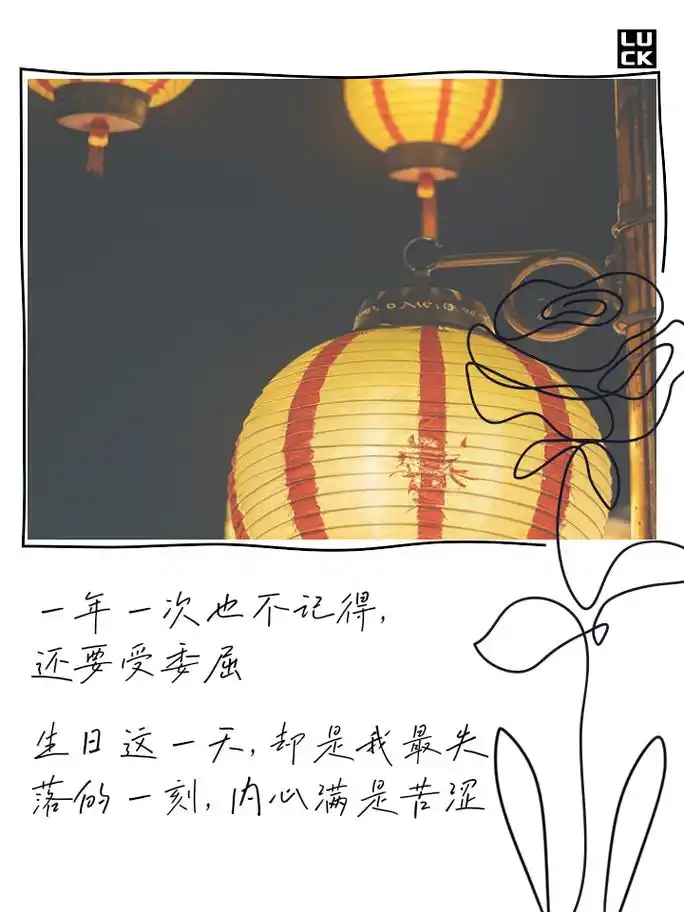 LU
CK
一年一次也不记得,
还要受委屈
生日这一天,却是我最失
落的一刻,内心满是苦涩